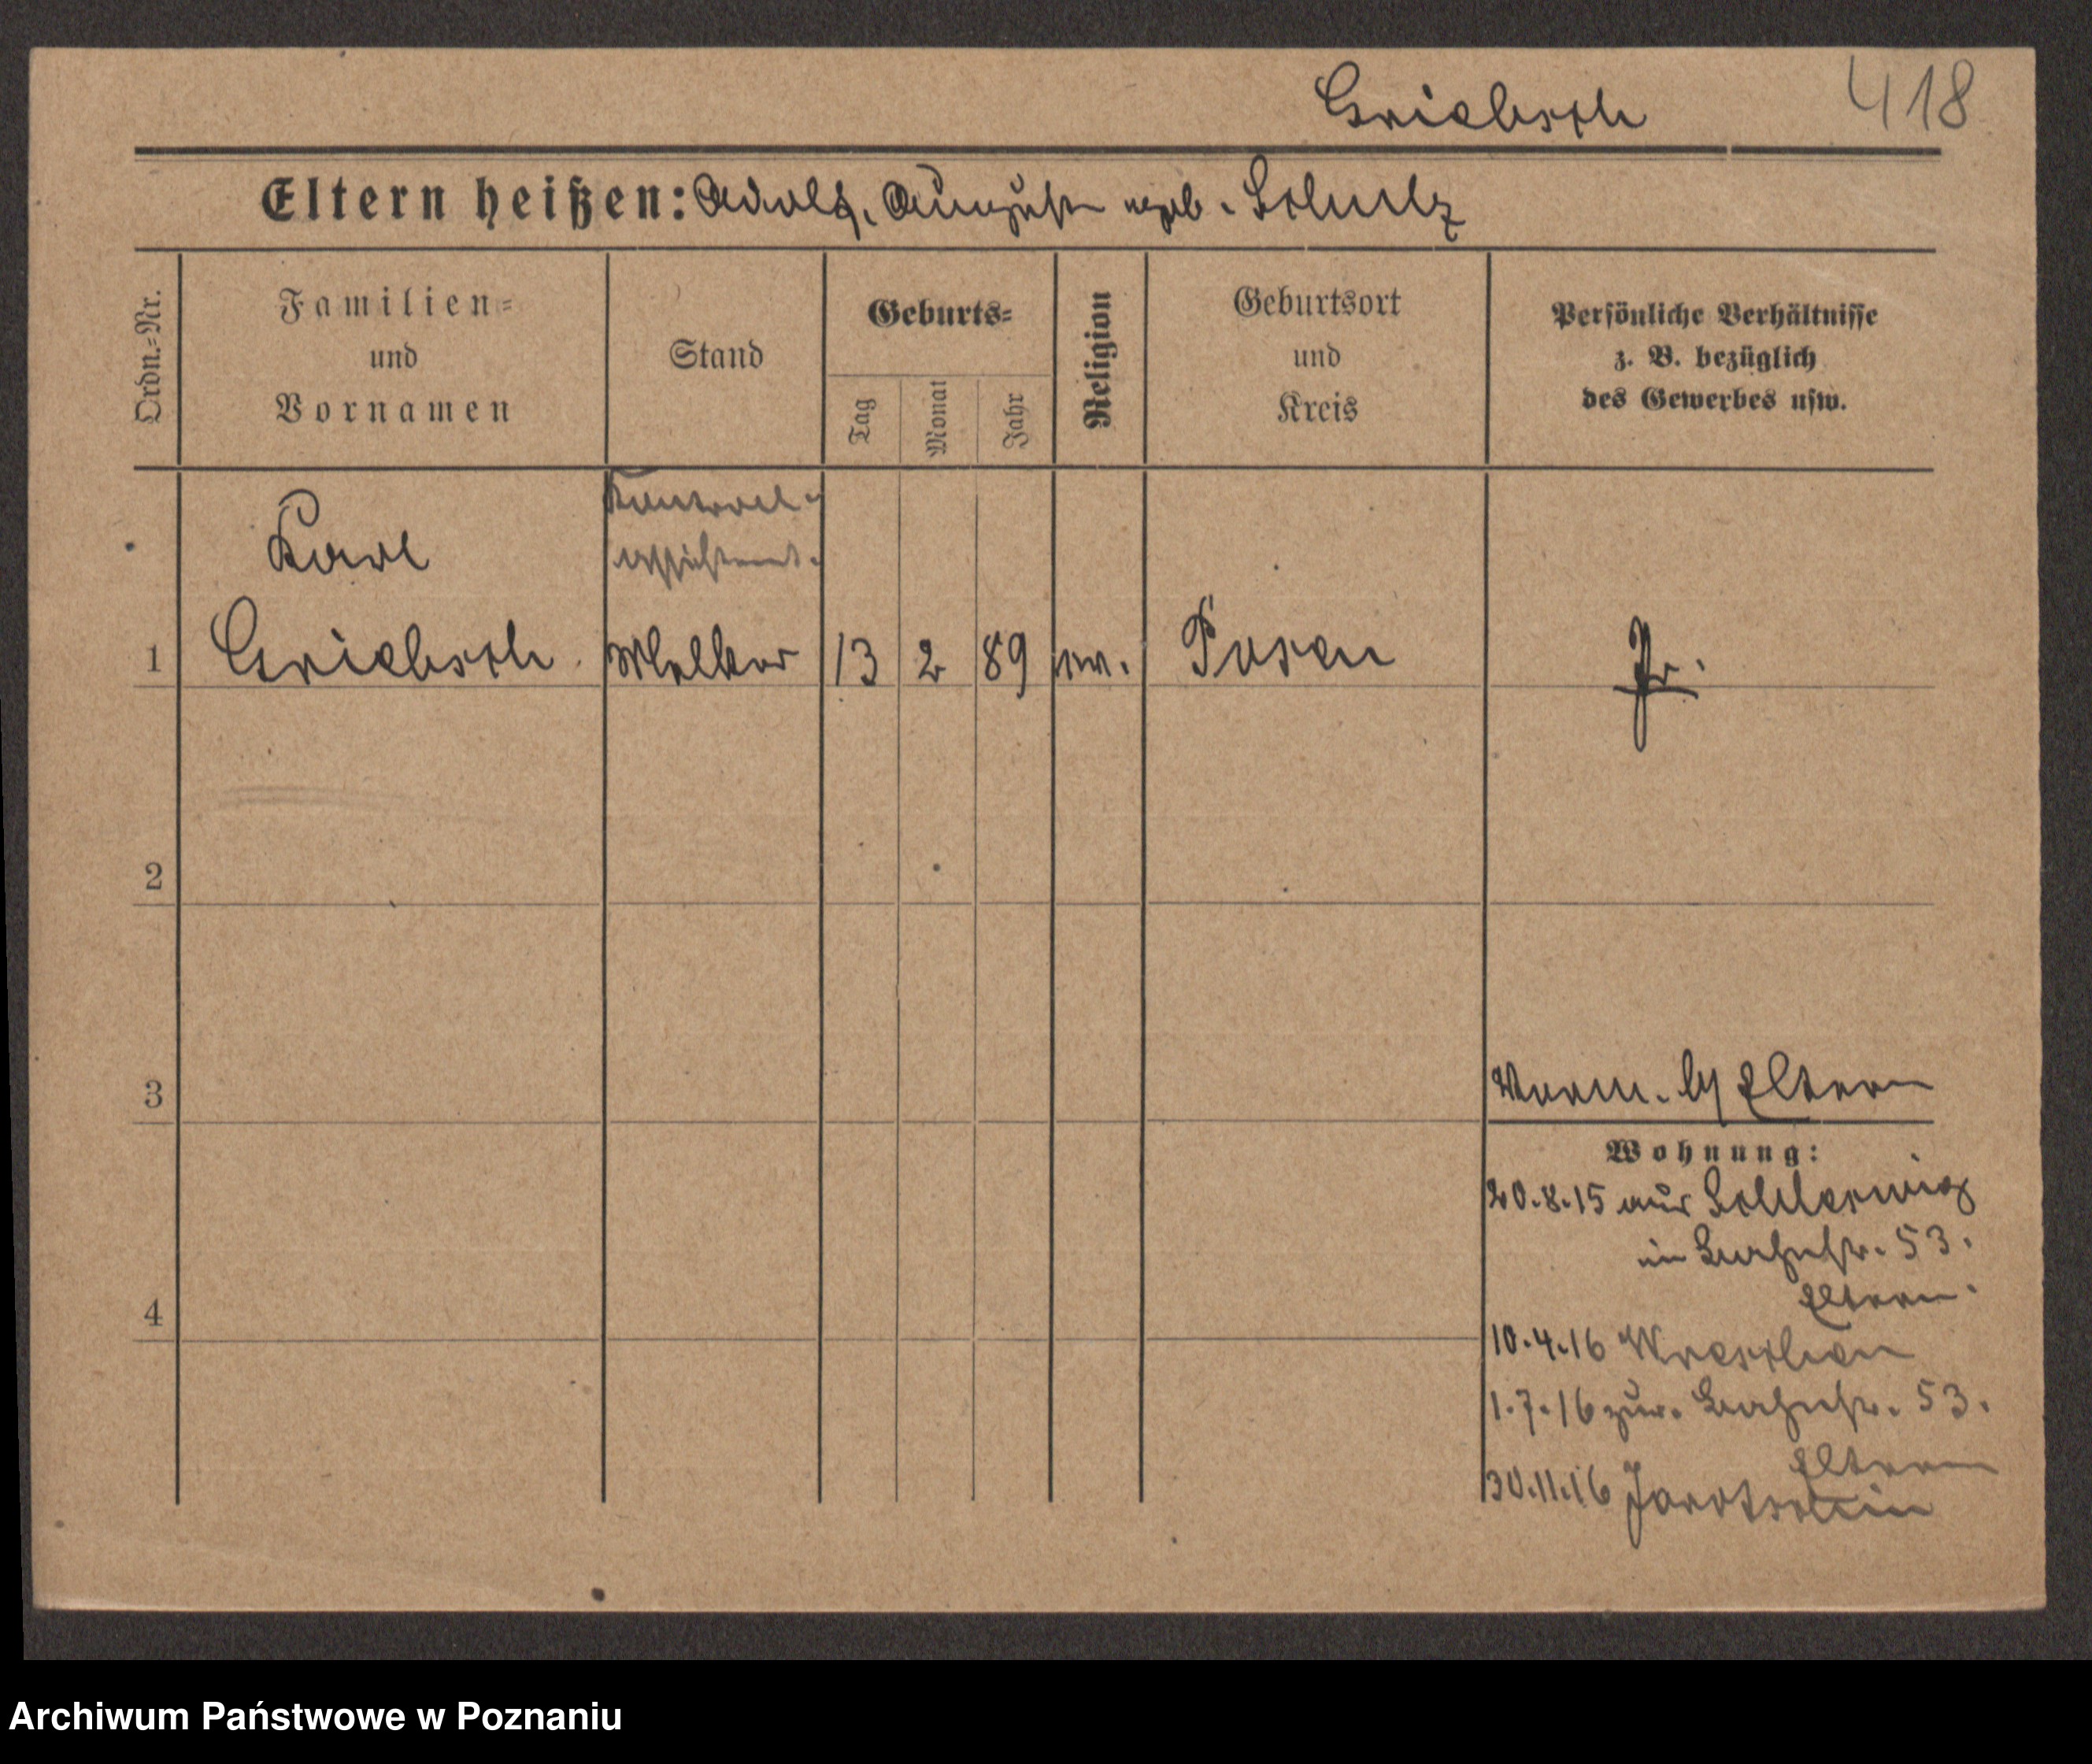 Griebsch 418
Eltern heißen: Adolf, Auguste geb. Schulz
Ordn.-Nr.
Familien-
und
Vornamen
Stand
Geburts-
Tag
Monat
Jahr
Religion
Geburtsort
und
Kreis
Persönliche Verhältnisse
z. B. bezüglich
des Gewerbes usw.
Kontroll-
assistent.
Karl
1 Griebsch Molker 13 2 89 ev. Posen Pr.
2
3
Vorm. by Eltern
Wohnung:
20.8.15 aus Schleswig
in Bahnstr. 53.
Eltern.
4
10.4.16 Wreschen
1.7.16 zur. Bahnstr. 53.
Eltern
30.11.16 Jarotschin
Archiwum Państwowe w Poznaniu